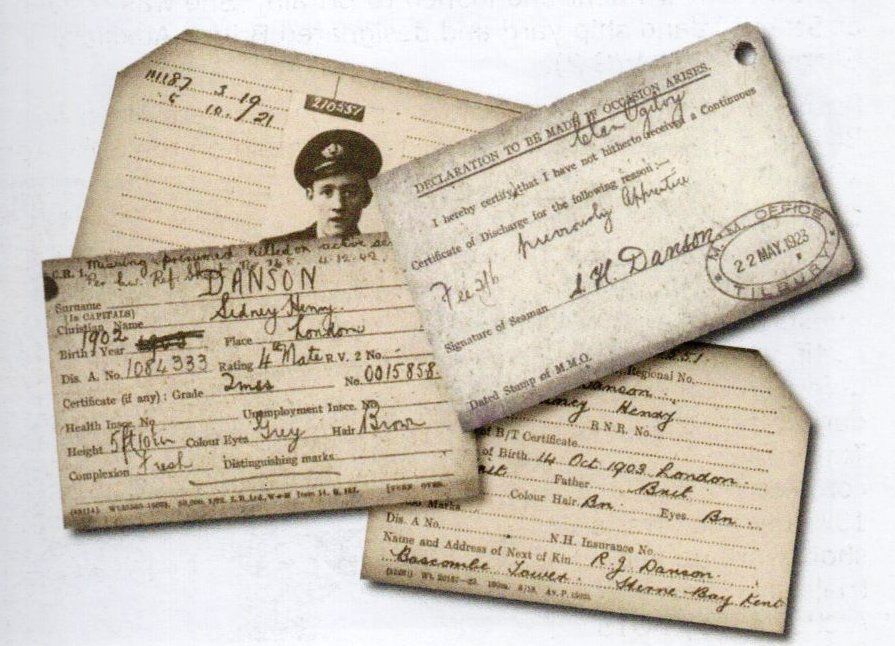 M187 3.19
10. 21
210557
C.R. 1. Missing presumed killed on active
DANSON
Surname
(In CAPITALS)
Christian Name Sidney Henry
Birth: Year 1902 Place London
Dis. A. No. 1084333 Rating 4th Mate R.V. 2 No.
Certificate (if any): Grade 2mss No. 0015858
Health Insce. No. Unemployment Insce. No.
Height 5ft 10in Colour Eyes Grey Hair Brown
Complexion Fresh Distinguishing marks
[TURN OVER.
DECLARATION TO BE MADE IF OCCASION ARISES.
Clan Ogilvy
I hereby certify that I have not hitherto received a Continuous
Certificate of Discharge for the following reason :—
previously Apprentice
Fee 2/6
Signature of Seaman S H Danson
Dated Stamp of M.M.O.
M. M. OFFICE
22 MAY 1923
TILBURY
Regional No.
Danson
Henry
R.N.R. No.
of B/T Certificate
of Birth 14 Oct. 1903 London
Father Brit
Colour Hair Bn. Eyes Bn.
Marks
Dis. A No.
N.H. Insurance No.
Name and Address of Next of Kin R. J. Danson
Boscombe Tower. Herne Bay Kent